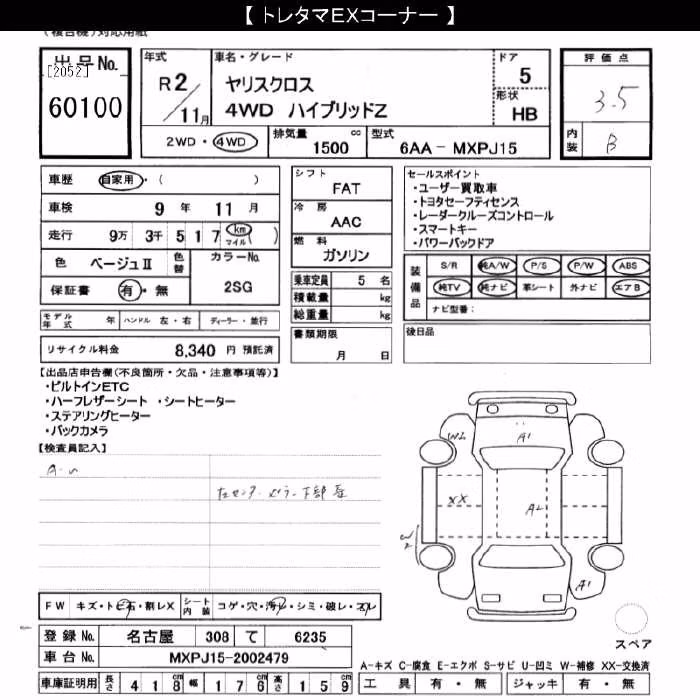 【 トレタマEXコーナー 】
(複合機)対応用紙
出品No.
[2052]
60100
年式
R 2/11月
車名・グレード
ヤリスクロス
4WD ハイブリッドZ
ドア
5
形状
HB
2WD・4WD
排気量 1500 cc
型式 6AA - MXPJ15
評価点
3.5
内装
B
車歴 自家用・( )
車検 9 年 11 月
走行 9万 3千 5 1 7 km マイル ( )
色 ベージュⅡ 色替 カラーNo.
保証書 有・無 2SG
シフト
FAT
冷房
AAC
燃料
ガソリン
乗車定員 5 名
積載量 kg
総重量 kg
書類期限
月 日
セールスポイント
・ユーザー買取車
・トヨタセーフティセンス
・レーダークルーズコントロール
・スマートキー
・パワーバックドア
装備品
S/R 純A/W P/S P/W ABS
純TV 純ナビ 革シート 外ナビ エアB
ナビ型番:
後日品
モデル年式 年 ハンドル 左・右 ディーラー・並行
リサイクル料金 8,340 円 預託済
【出品店申告欄(不良箇所・欠品・注意事項等)】
・ビルトインETC
・ハーフレザーシート ・シートヒーター
・ステアリングヒーター
・バックカメラ
【検査員記入】
W2
A1
XX
A2
W2
A1
スペア
FW キズ・トビ石・割レX
シート内装 コゲ・穴・汚レ・シミ・破レ・スレ
登録No. 名古屋 308 て 6235
車台No. MXPJ15-2002479
車庫証明用 長さ 4 1 8 cm 幅 1 7 6 cm 高さ 1 5 9 cm
A-キズ C-腐食 E-エクボ S-サビ U-凹ミ W-補修 XX-交換済
工具 有・無 ジャッキ 有・無